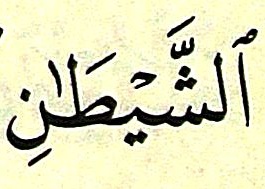 ٱلشَّيْطَٰنِ